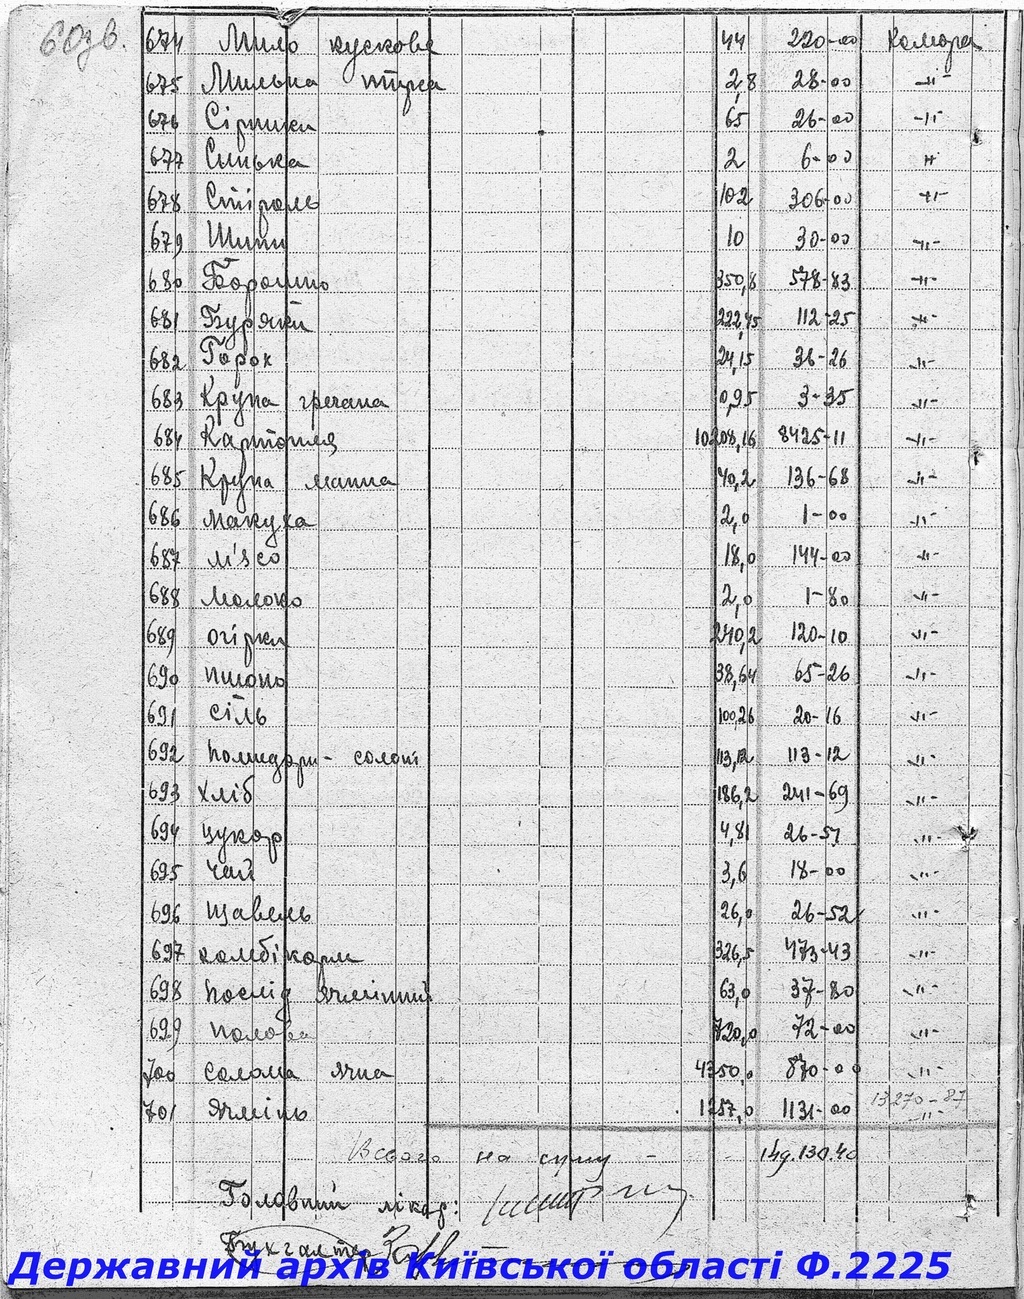 60зв.
674 Мило кускове 44 220-00 Комора
675 Мильна 2,8 28-00 -"-
676 Сірники 65 26-00 -"-
677 Синька 2 6-00 "
678 102 306-00 -"-
679 10 30-00 -"-
680 Борошно 350,8 578-83 -"-
681 Буряки 222,45 112-25 -"-
682 Горох 24,15 36-26 -"-
683 Крупа гречана 0,95 3-35 -"-
684 Картопля 10208,16 8425-11 -"-
685 Крупа манна 40,2 136-68 -"-
686 макуха 2,0 1-00 -"-
687 м'ясо 18,0 144-00 -"-
688 молоко 2,0 1-80 -"-
689 огірки 240,2 120-10 -"-
690 пшоно 38,64 65-26 -"-
691 сіль 100,26 20-16 -"-
692 помидори- солоні 113,12 113-12 -"-
693 хліб 186,2 241-69 -"-
694 цукор 4,81 26-57 -"-
695 чай 3,6 18-00 -"-
696 щавель 26,0 26-52 -"-
697 комбікорм 326,5 473-43 -"-
698 послід ячмінний 63,0 37-80 -"-
699 полова 720,0 72-00 -"-
700 солома ячна 4350,0 870-00 -"-
701 ячмінь 1257,0 1131-00 13270-87 -"-
Всього на суму - 149.130.40
Головний лікар:
Бухгалтер
Державний архів Київської області Ф.2225